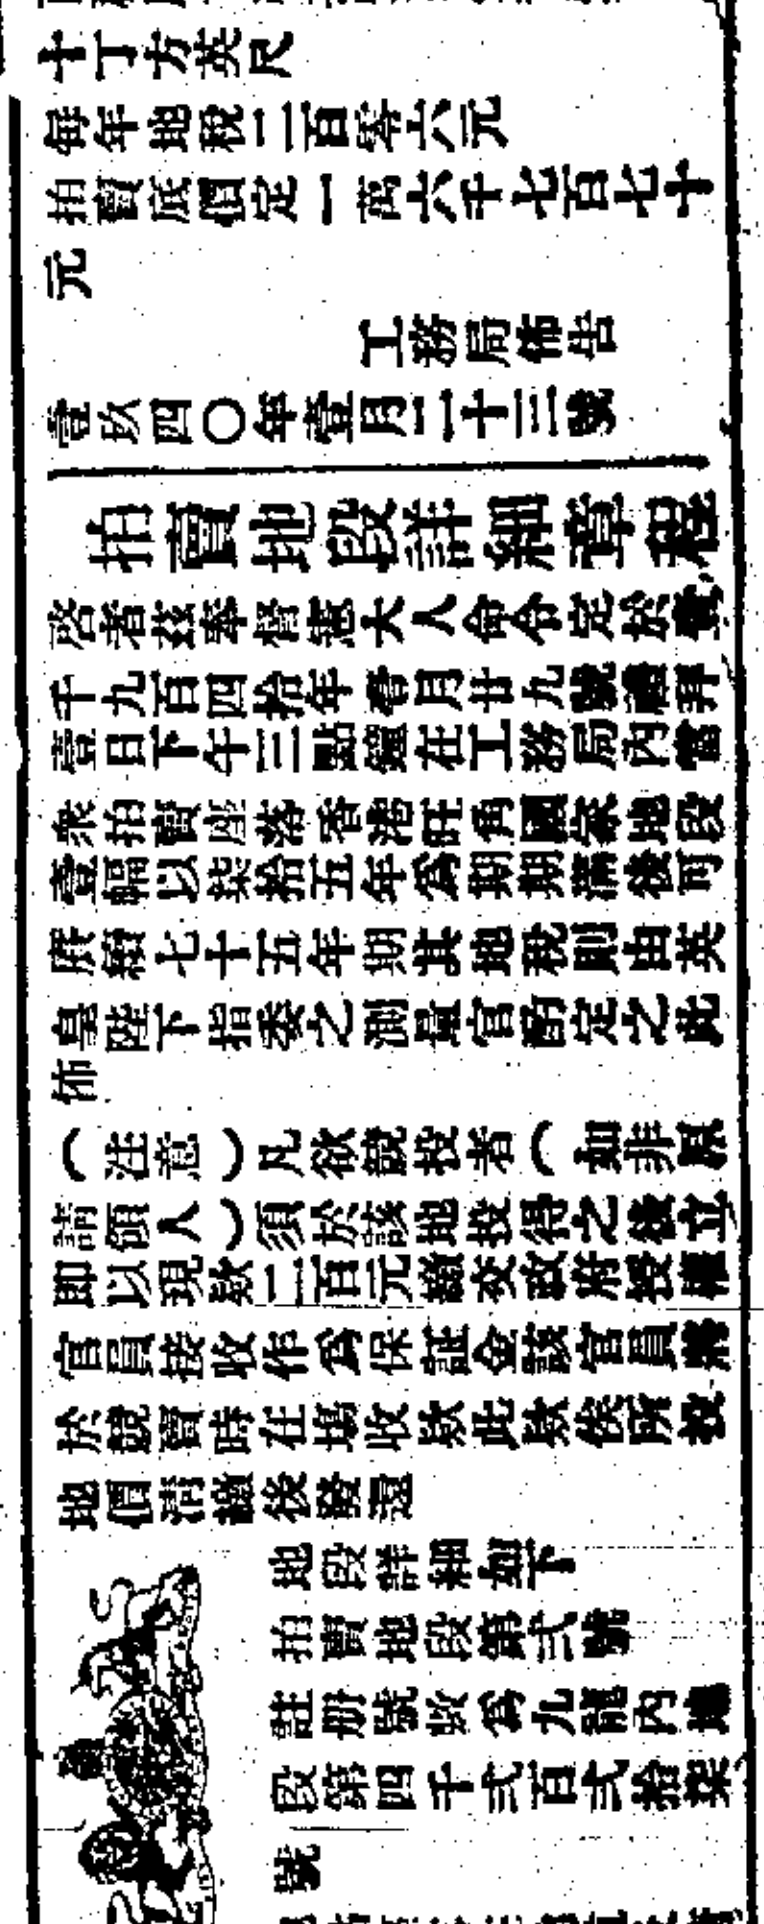 十丁方英尺
每年地稅二百零六元
拍賣底價定一萬六千七百七十
元
工務局佈告
壹玖四〇年壹月二十三號
拍賣地段詳細章程
啓者茲奉督憲大人命令定於壹
千九百四拾年壹月廿九號禮拜
壹日下午三點鐘在工務局內當
衆拍賣座落香港旺角國家地段
壹幅以柒拾五年爲期期滿後可
再續七十五年期其地稅則由英
皇陛下指委之測量官酌定之此
佈
(注意)凡欲競投者(如非原
請領人)須於該地投得之後立
即以現欵二百元繳交政府授權
官員接收作爲保証金該官員將
於競賣時在塲收欵此欵俟所投
地價清繳後發還
地段詳細如下
拍賣地段第弍號
註册號數爲九龍內地
段第四千弍百弍拾柒
號